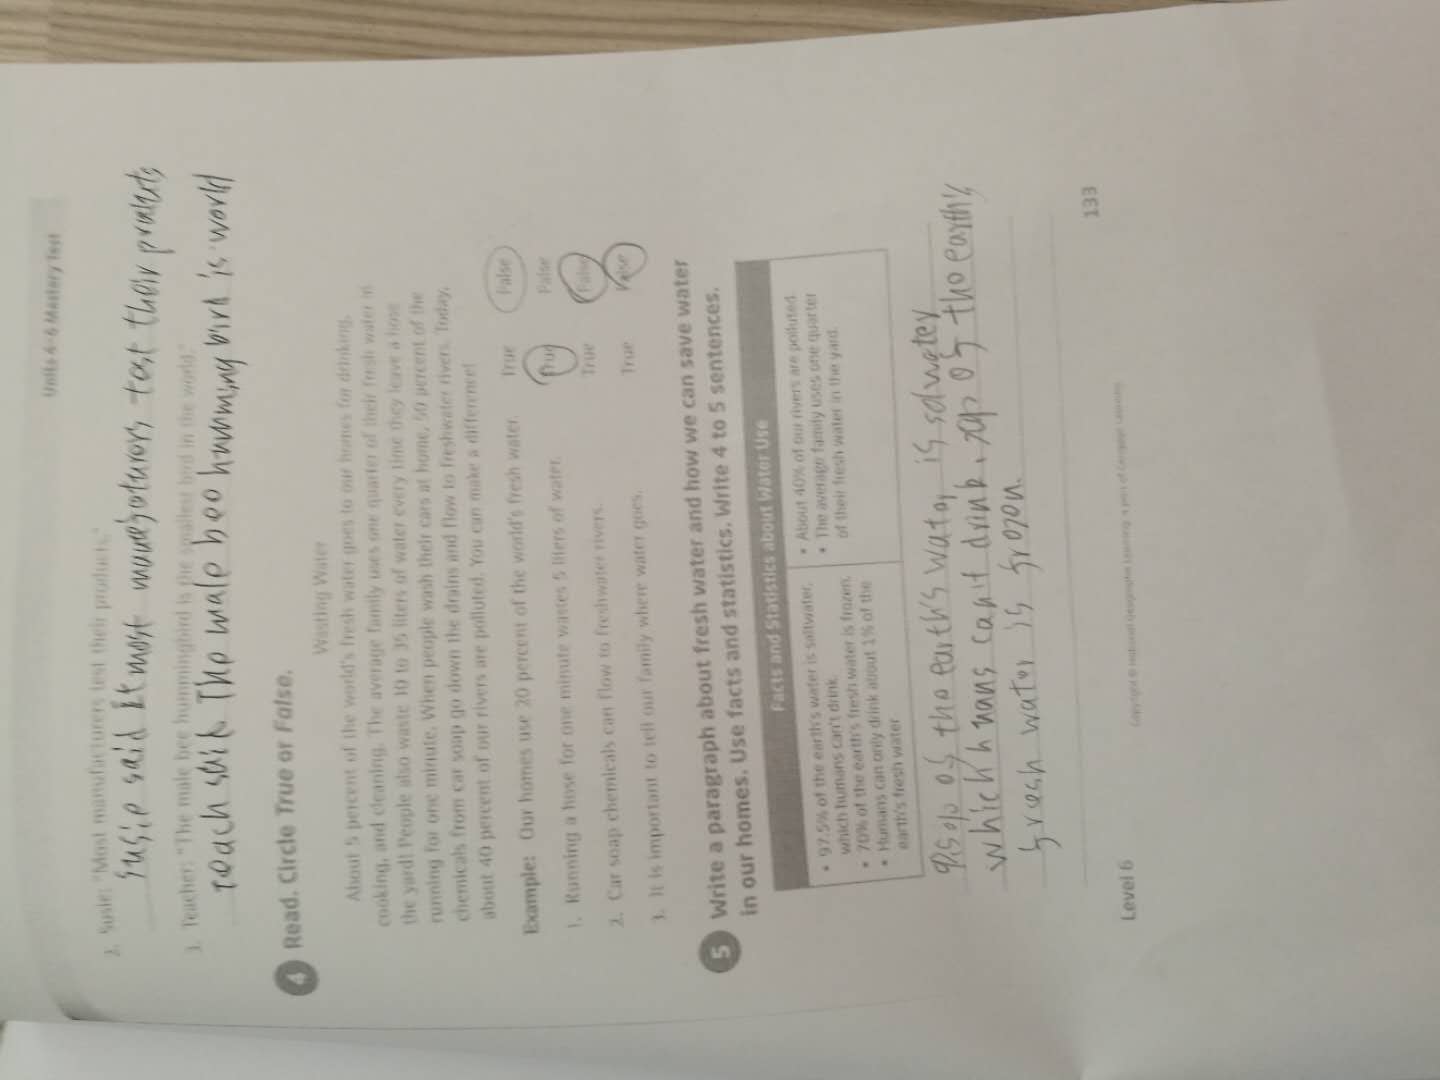 Units 4–6 Mastery Test
2. Susie: "Most manufacturers test their products."
susie said most manugoturors test their
3. Teacher: "The male bee hummingbird is the smallest bird in the world."
teach said The male bee humming bird is world
4 Read. Circle True or False.
Wasting Water
About 5 percent of the world's fresh water goes to our homes for drinking,
cooking, and cleaning. The average family uses one quarter of their fresh water in
the yard! People also waste 10 to 35 liters of water every time they leave a hose
running for one minute. When people wash their cars at home, 50 percent of the
chemicals from car soap go down the drains and flow to freshwater rivers. Today,
about 40 percent of our rivers are polluted. You can make a difference!
Example: Our homes use 20 percent of the world's fresh water. True False
1. Running a hose for one minute wastes 5 liters of water. True False
2. Car soap chemicals can flow to freshwater rivers. True False
3. It is important to tell our family where water goes. True False
5 Write a paragraph about fresh water and how we can save water
in our homes. Use facts and statistics. Write 4 to 5 sentences.
Facts and Statistics about Water Use
• 97.5% of the earth's water is saltwater,
which humans can't drink.
• 70% of the earth's fresh water is frozen.
• Humans can only drink about 1% of the
earth's fresh water
• About 40% of our rivers are polluted.
• The average family uses one quarter
of their fresh water in the yard.
of the earth's water is
which humans can't drink. of the earth's
fresh water is frozen.
Level 6
Copyright © National Geographic Learning, a part of Cengage Learning
133